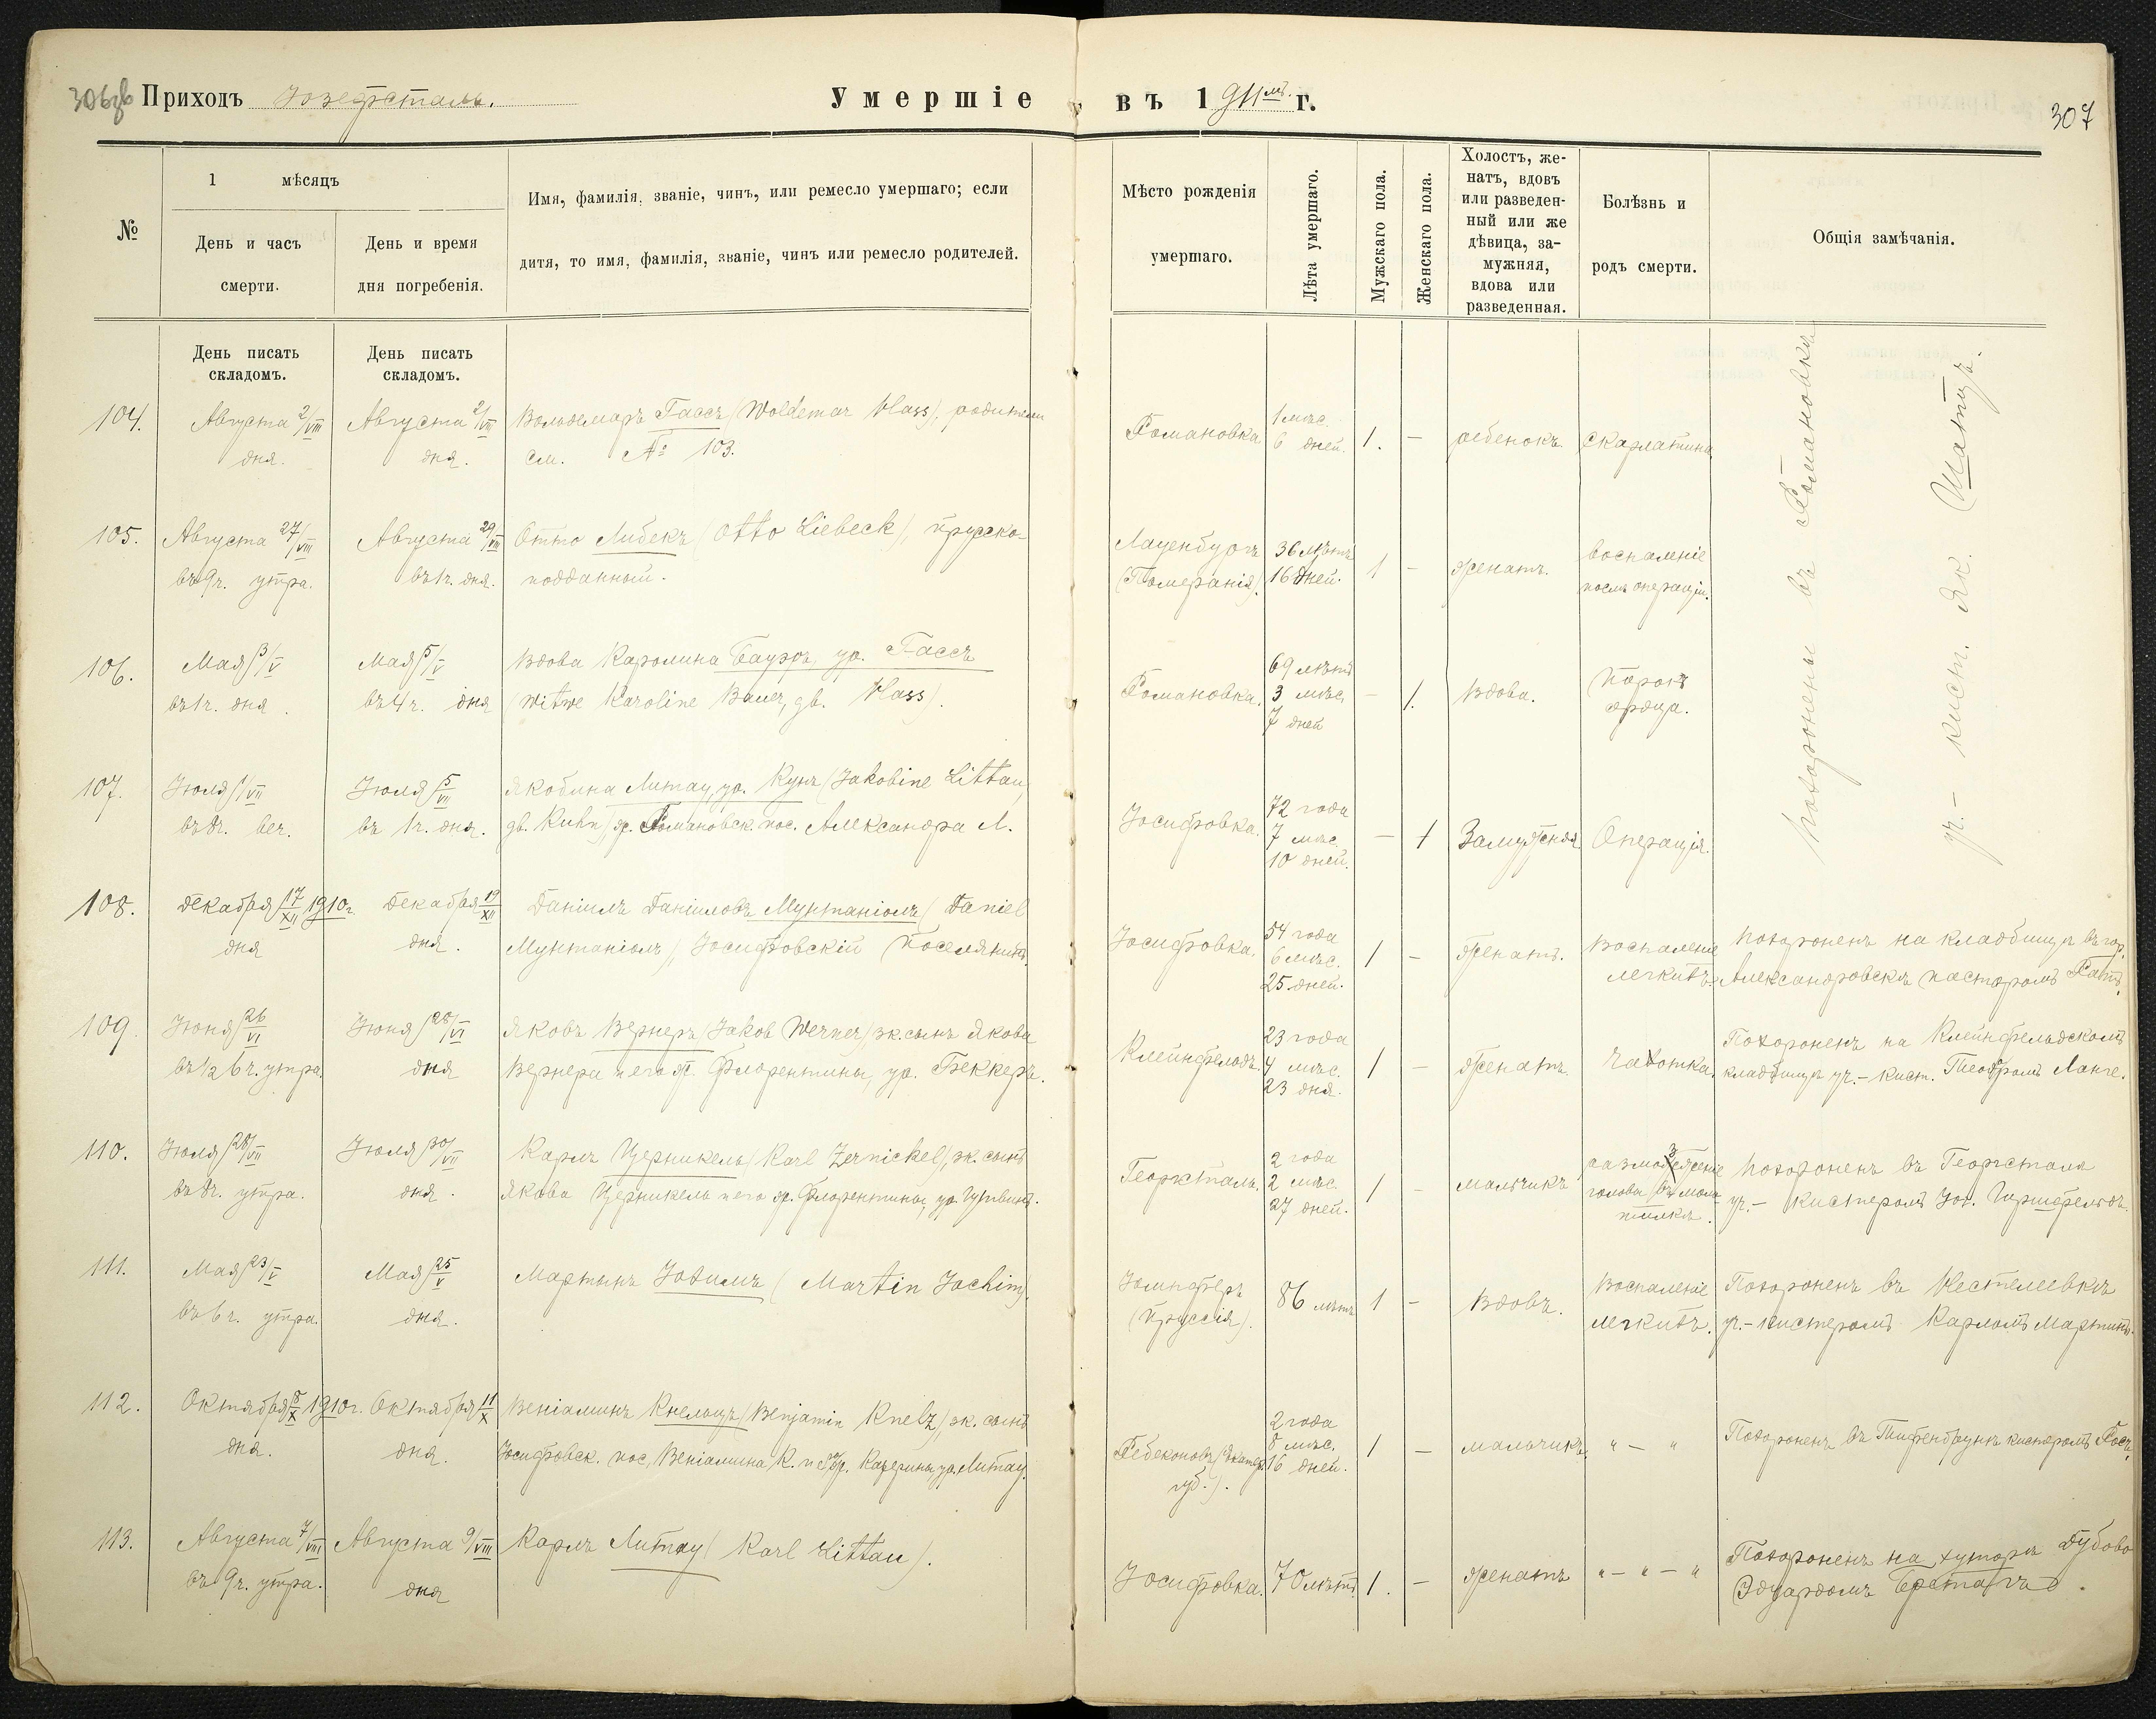 306об Приходъ Іозефсталь. Умершіе въ 1911мъ г. 307
№
1 мѣсяцъ
День и часъ
смерти.
День и время
дня погребенія.
Имя, фамилія, званіе, чинъ, или ремесло умершаго; если
дитя, то имя, фамилія, званіе, чинъ или ремесло родителей.
Мѣсто рожденія
умершаго.
Лѣта умершаго.
Мужскаго пола.
Женскаго пола.
Холостъ, же-
натъ, вдовъ
или разведен-
ный или же
дѣвица, за-
мужняя,
вдова или
разведенная.
Болѣзнь и
родъ смерти.
Общія замѣчанія.
День писать
складомъ.
День писать
складомъ.
104.
Августа 2/VIII
дня.
Августа 2/VIII
дня.
Вольдемаръ Гассъ (Woldemar Hass), родители
см. № 103.
Романовка
1 мѣс.
6 дней.
1. —
ребенокъ
скарлатина
похоронены въ Романовкѣ
уч.- кист. Як. Шатцъ.
105.
Августа 27/VIII
въ 9ч. утра.
Августа 29/VIII
въ 1ч. дня.
Отто Либекъ (Otto Liebeck), прусско-
подданный.
Лауенбургъ
(Померанія).
36 лѣтъ
16 дней.
1 —
женатъ.
воспаленіе
послѣ операціи.
106.
Мая 3/V
въ 1ч. дня.
Мая 5/V
въ 4ч. дня
Вдова Каролина Бауэръ, ур. Гассъ
(Witwe Karoline Bauer, gb. Hass).
Романовка.
69 лѣтъ
3 мѣс.
7 дней
— 1.
Вдова.
Порокъ
сердца.
107.
Іюля 1/VII
въ 8ч. веч.
Іюля 5/VII
въ 1ч. дня.
Якобина Литау, ур. Кунъ (Jakobine Littau,
gb. Kuhn) ж. Романовск. пос. Александра Л.
Іосифовка.
72 года
7 мѣс.
10 дней.
— 1
Замужняя
Операція.
108.
Декабря 17/XII 1910г.
дня
Декабря 19/XII
дня.
Даніилъ Даніиловъ Мунтаніолъ (Daniel
Мунтаніолъ), Іосифовскій поселянинъ.
Іосифовка.
54 года
6 мѣс.
25 дней.
1 —
Женатъ.
Воспаленіе
легкихъ.
Похороненъ на кладбищѣ въ гор.
Александровскѣ пасторомъ Ратъ.
109.
Іюня 26/VI
въ ½ 6ч. утра.
Іюня 28/VI
дня
Яковъ Вернеръ (Jakob Werner), зк. сынъ Якова
Вернера и его ж. Флорентины, ур. Беккеръ.
Клейнфельдъ.
23 года
4 мѣс.
23 дня.
1 —
Женатъ
Чахотка.
Похороненъ на Клейнфельдскомъ
кладбищѣ уч.- кист. Теофромъ Ланге.
110.
Іюля 28/VII
въ 8ч. утра.
Іюля 30/VII
дня.
Карлъ Церникель (Karl Zernickel), зк. сынъ
Якова Церникель и его ж. Флорентины, ур.
Георгсталь.
2 года
2 мѣс.
27 дней.
1 —
мальчикъ
голова въ моло-
тилкѣ.
Похороненъ въ Георгсталѣ
уч.- кистеромъ Іог. Гиршфельдъ.
111.
Мая 23/V
въ 6ч. утра.
Мая 25/V
дня.
Мартынъ Іохимъ (Martin Jochim).
(Пруссія).
86 лѣтъ
1 —
Вдовъ.
Воспаленіе
легкихъ.
Похороненъ въ Нестелеевкѣ
уч.- кистеромъ Карломъ Мартинъ.
112.
Октября 8/X 1910г.
дня.
Октября 11/X
дня.
Веніаминъ Кнельцъ (Benjamin Knelz), зк. сынъ
Іосифовск. пос. Веніамина К. и Катерины, ур. Литау.
губ.).
2 года
8 мѣс.
16 дней.
1 —
мальчикъ.
" — "
Похороненъ въ Тифенбруннѣ кистеромъ
113.
Августа 7/VIII
въ 9ч. утра.
Августа 9/VIII
дня
Карлъ Литау (Karl Littau).
Іосифовка.
70 лѣтъ
1. —
женатъ
" — " — "
Похороненъ на хуторѣ Дубово
Эдуардомъ